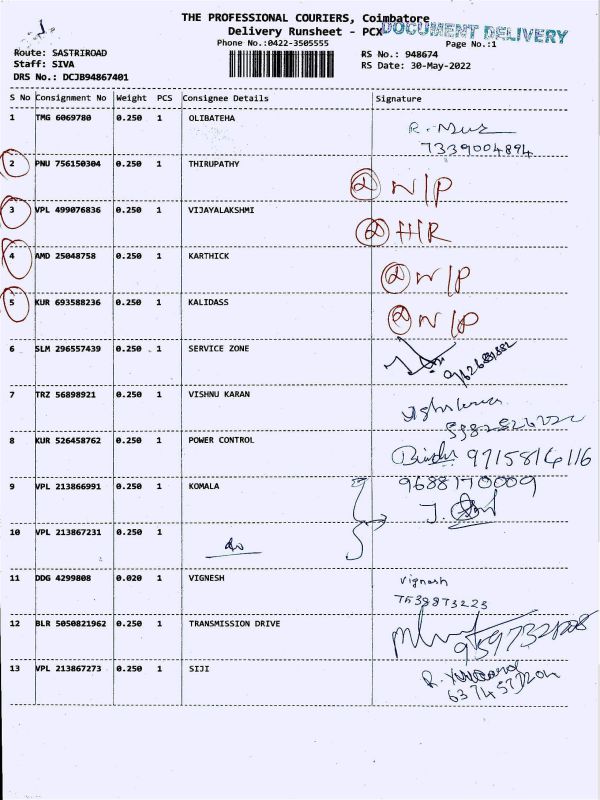 THE PROFESSIONAL COURIERS, Coimbatore
Delivery Runsheet - PCX
DOCUMENT DELIVERY
Phone No.:0422-3505555
Page No.:1
Route: SASTRIROAD
RS No.: 948674
Staff: SIVA
RS Date: 30-May-2022
DRS No.: DCJB94867401
S No Consignment No Weight PCS Consignee Details Signature
1 TMG 6069780 0.250 1 OLIBATEHA
7339004894
2 PNU 756150304 0.250 1 THIRUPATHY
N/P
3 VPL 499076836 0.250 1 VIJAYALAKSHMI
H/R
4 AMD 25048758 0.250 1 KARTHICK
N/P
5 KUR 693588236 0.250 1 KALIDASS
N/P
6 SLM 296557439 0.250 1 SERVICE ZONE
7 TRZ 56898921 0.250 1 VISHNU KARAN
8 KUR 526458762 0.250 1 POWER CONTROL
9715814116
9 VPL 213866991 0.250 1 KOMALA
9688170009
10 VPL 213867231 0.250 1
11 DDG 4299808 0.020 1 VIGNESH
Vignesh
7539873223
12 BLR 5050821962 0.250 1 TRANSMISSION DRIVE
13 VPL 213867273 0.250 1 SIJI